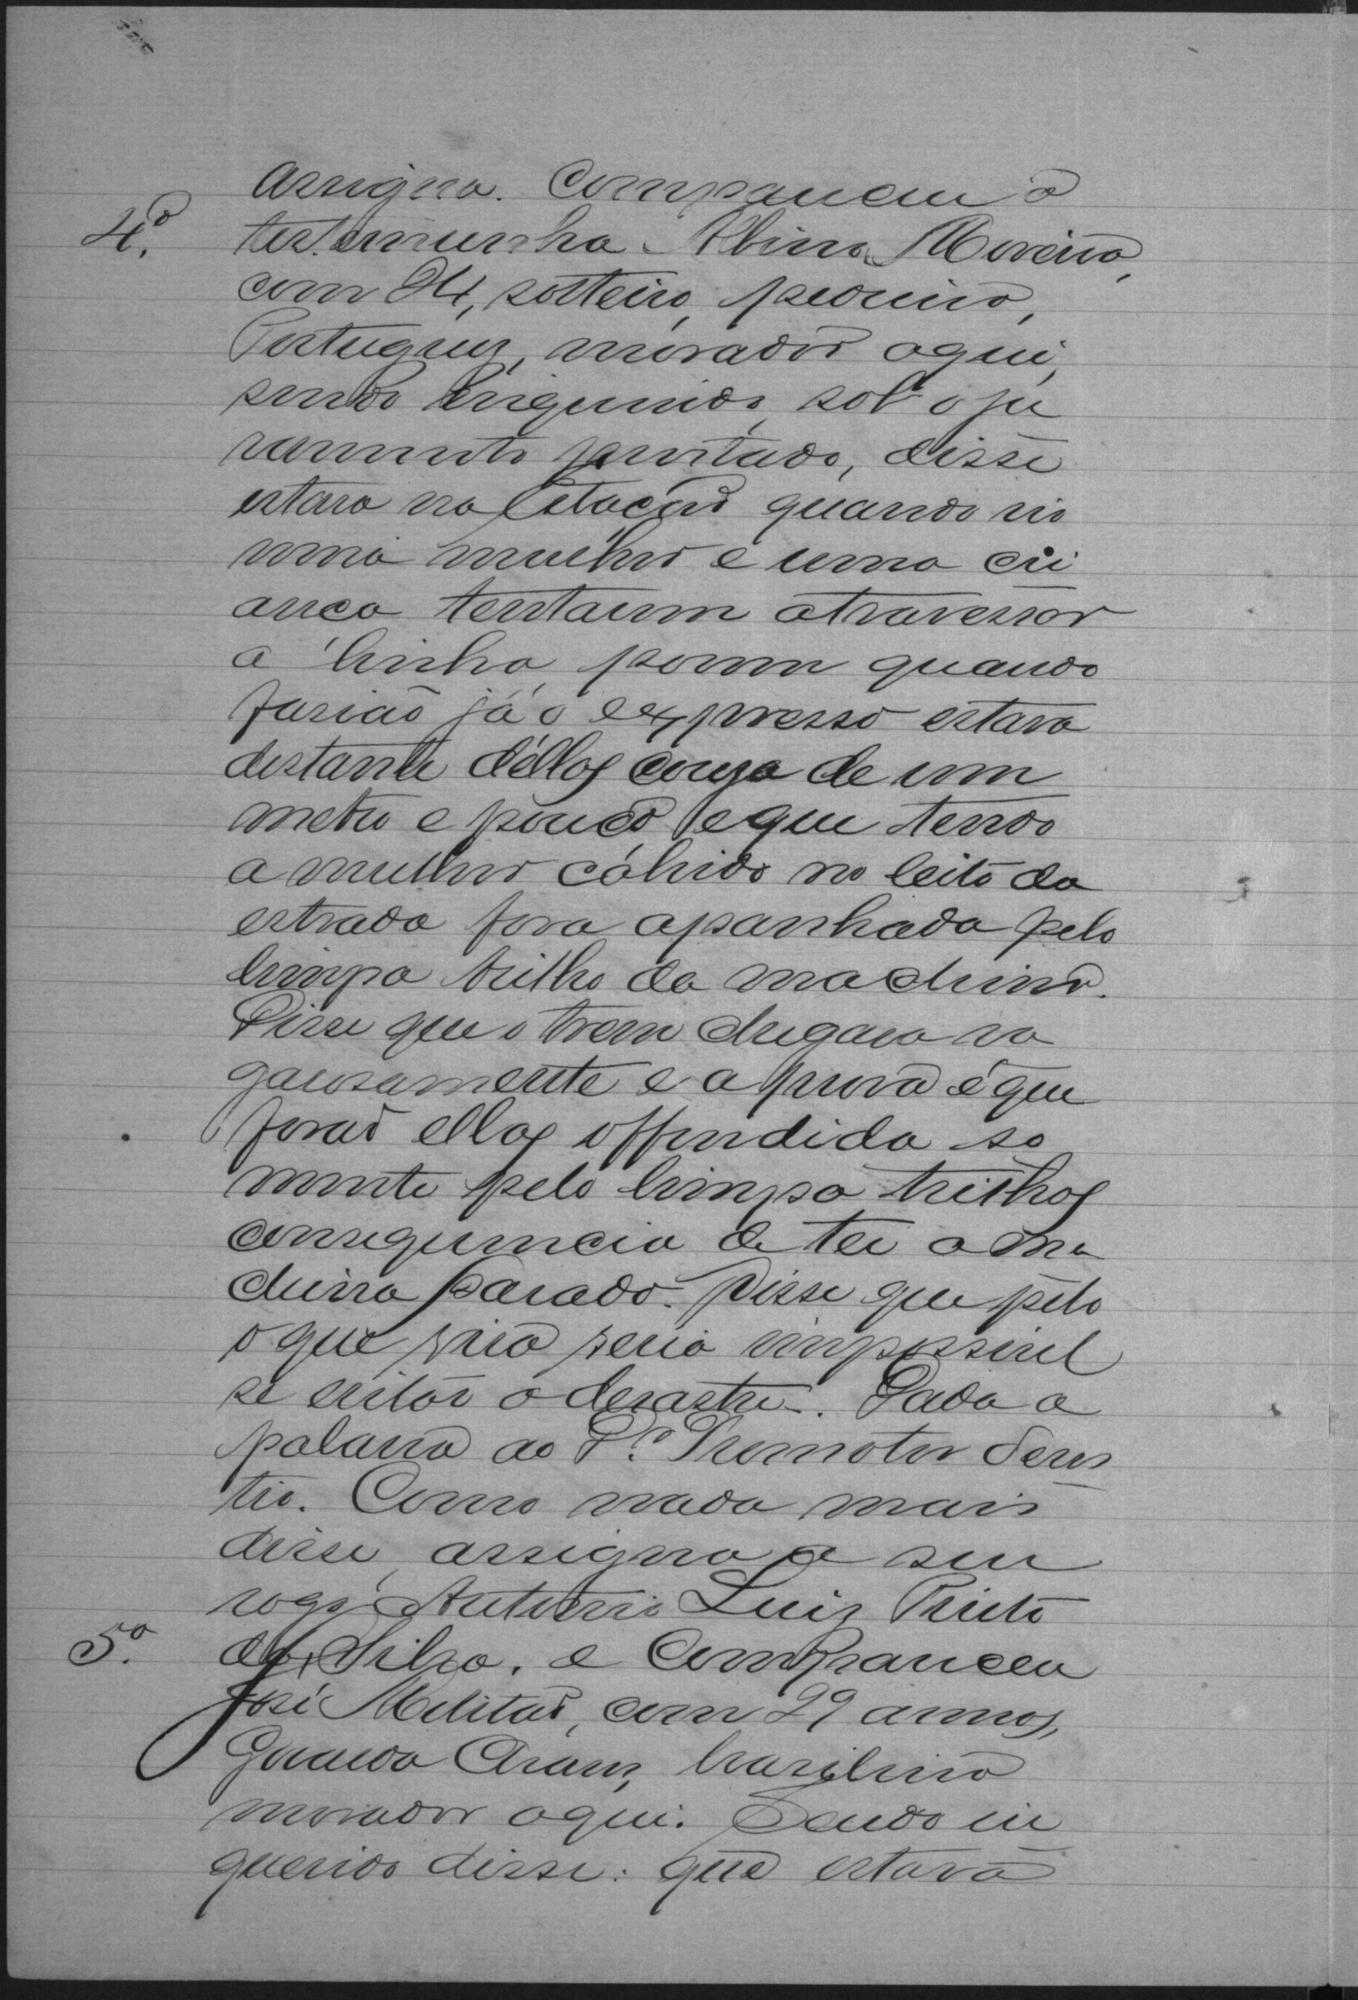 assigna. Compareceu a
4.º testemunha Albino Moreira,
com 24, solteiro, pedreiro,
Portuguez, morador aqui,
sendo inquirido, sob o ju
ramento prestado, disse
estava na Estação quando vio
uma mulher e uma cri
anca tentarem atravessar
a linha, porem quando
fasiaõ já o expresso estava
distante d'éllas couza de um
metro e pouco e que tendo
a mulher cahido no leito da
estrada fora apanhada pelo
limpa trilho da machina.
Disse que o trem chegava va
garosamente e a prova é que
foraõ ellas offendida so
mente pelo limpa trilhos
consequencia de ter a ma
china parado. Disse que pelo
o que vira seria impossivel
se evitar o desastre. Dada a
palavra ao Dr. Promotor desis
tio. Como nada mais
disse, assigna a seu
rogo Antonio Luiz Pinto
da Silva. e Compareceu
5.º José Militaõ, com 29 annos,
Guarda chaves, brasileiro
morador aqui. Sendo in
querido disse: que estava